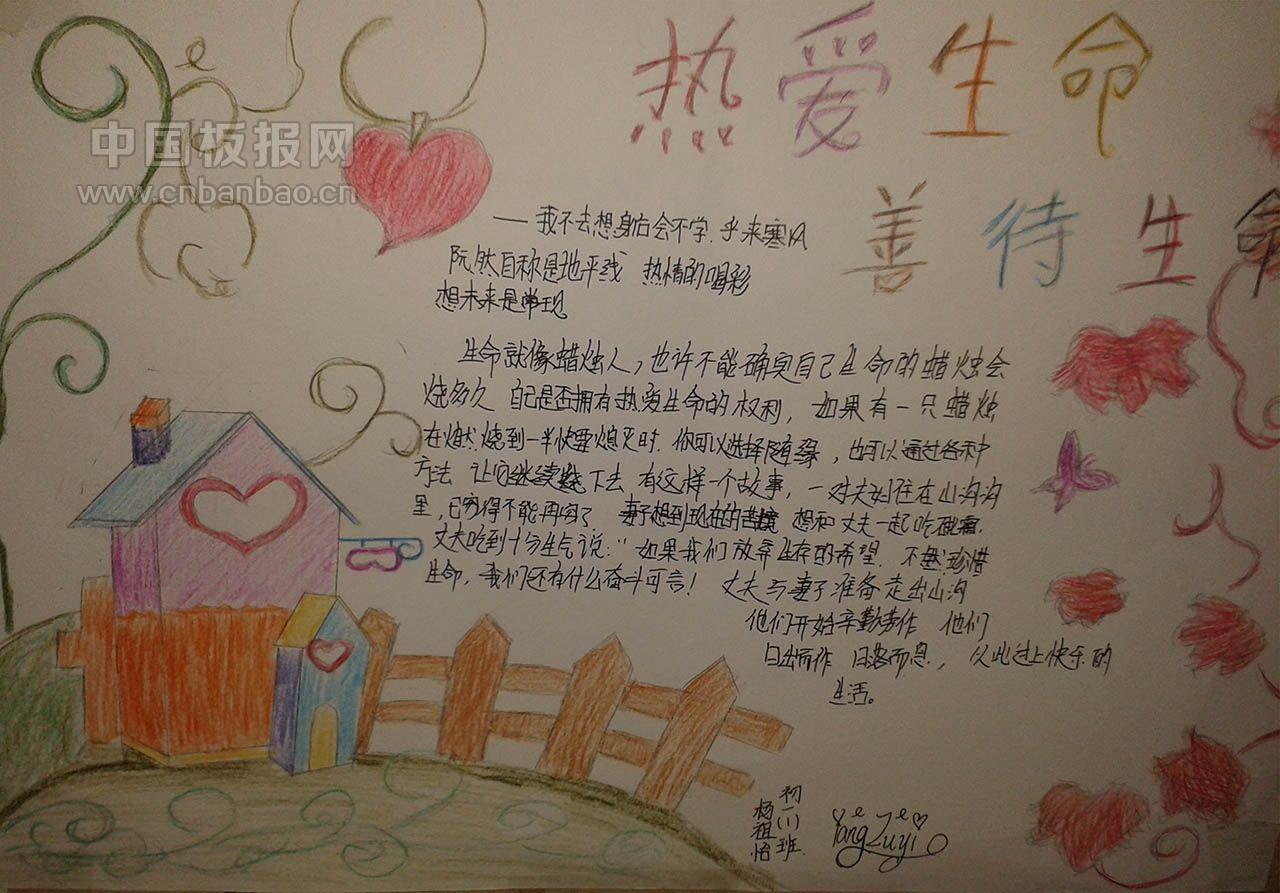 热爱生命
善待生命
中国板报网
www.cnbanbao.cn
——我不去想身后会不字.乎来寒风
阮然自称是地平线 热情的喝彩
想未来是
生命就像蜡烛人，也许不能确定自己生命的蜡烛会
烧多久 自己是否拥有热爱生命的权利，如果有一只蜡烛
在燃烧到一半快要熄灭时.你可以选择随缘，也可以通过各种
方法 让它继续烧下去 有这样一个故事，一对夫妇住在山沟沟
里，已穷得不能再穷了 妻子想到现在的苦 想和丈夫一起吃
丈夫吃到十分生气说："如果我们放弃生存的希望.不 珍惜
生命，我们还有什么奋斗可言！丈夫与妻子准备走出山沟
他们开始辛勤劳作 他们
日出而作 日落而息，从此过上快乐的
生活。
初一(1)班
杨祖怡
Yang Zuyi